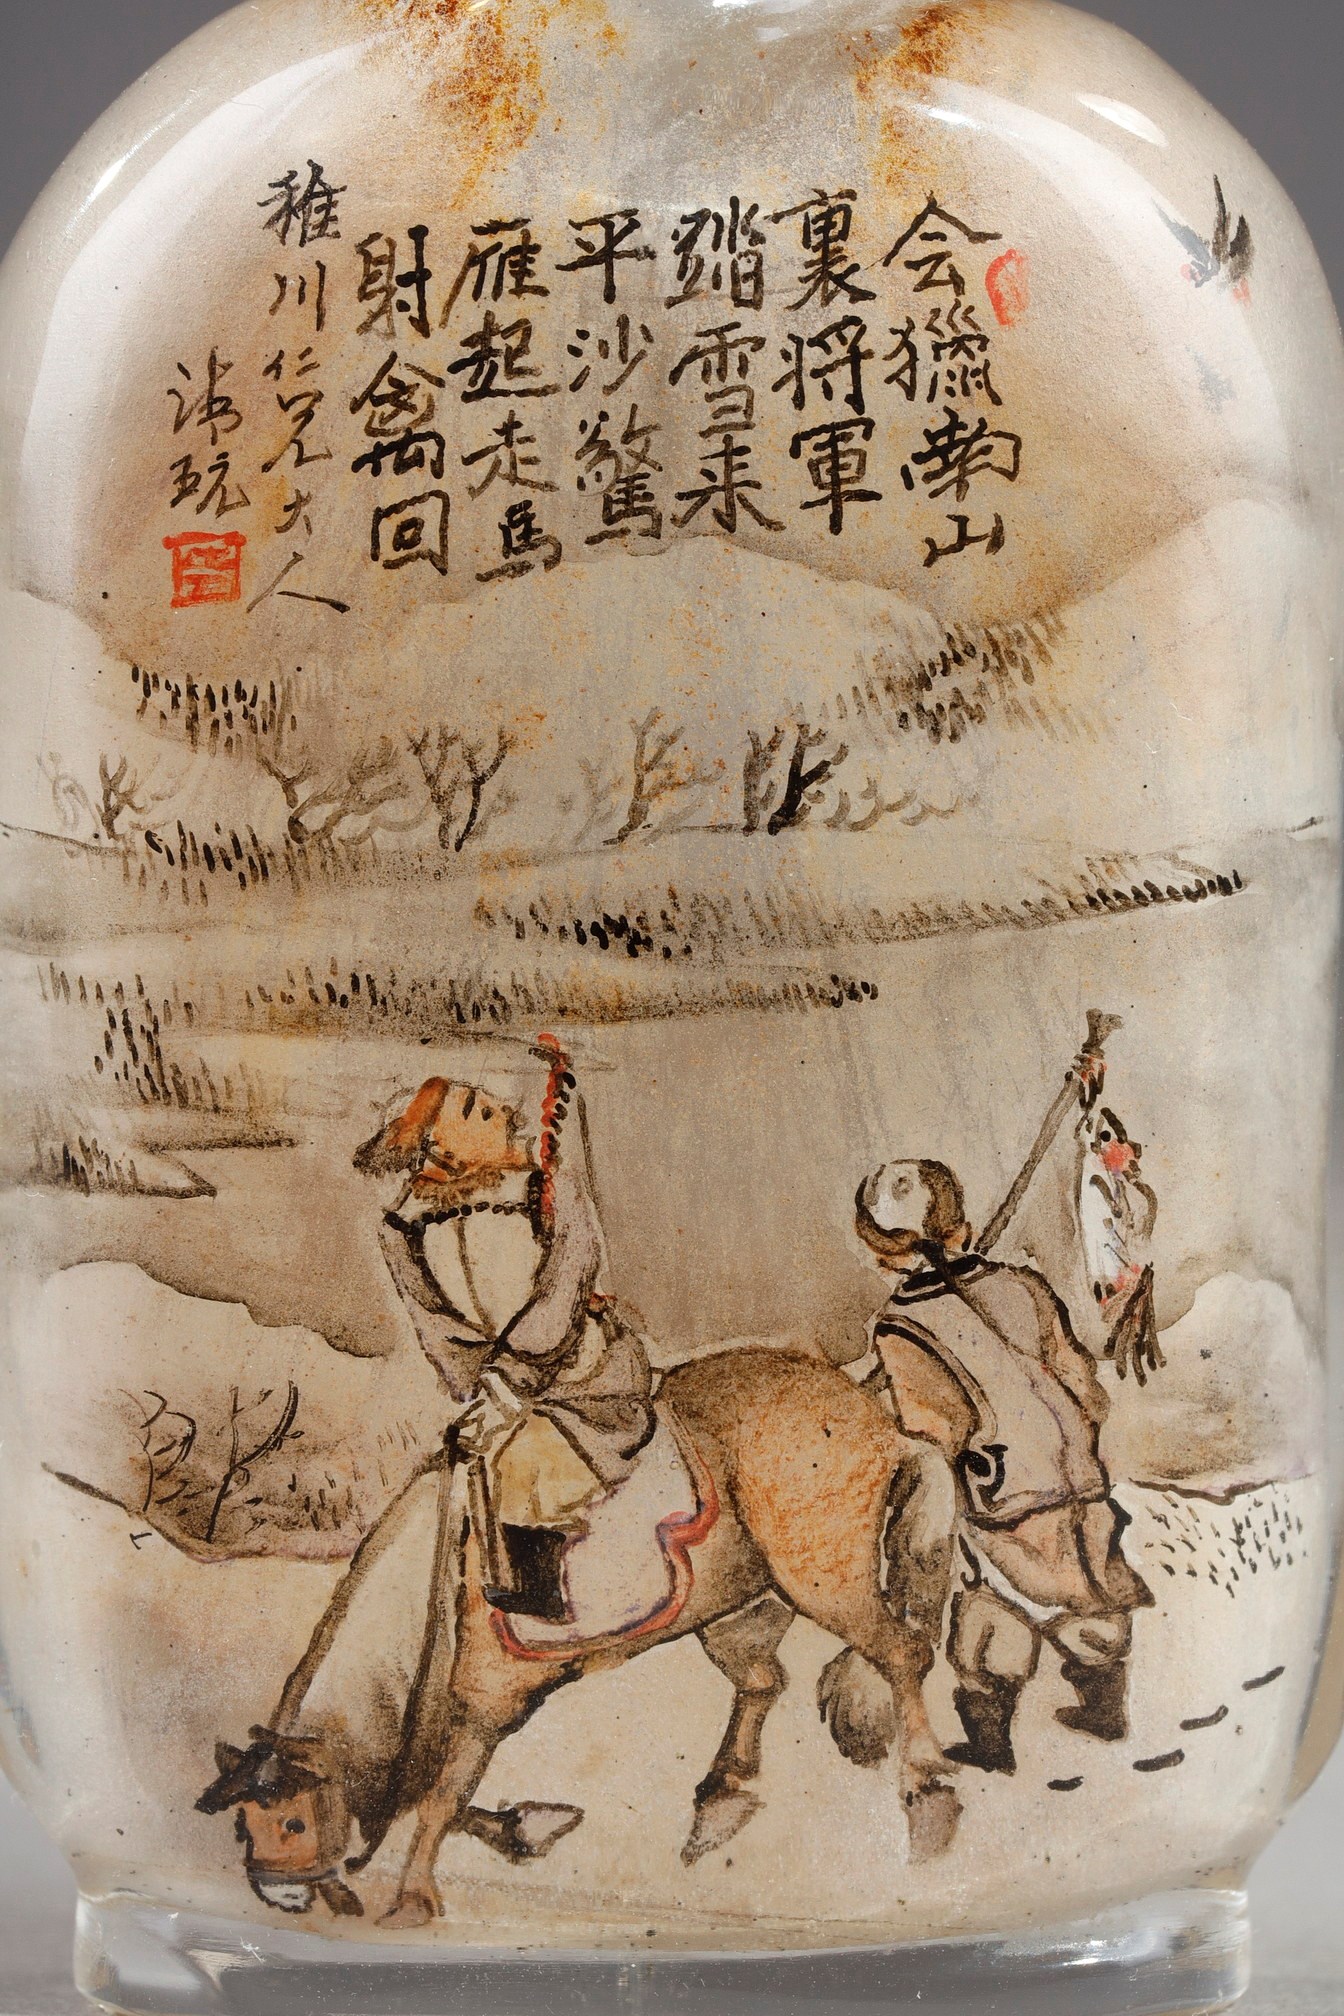 会獵南山
裏将軍
踏雪来
平沙驚
雁起走馬
射禽回
稚川仁兄大人
沛玩